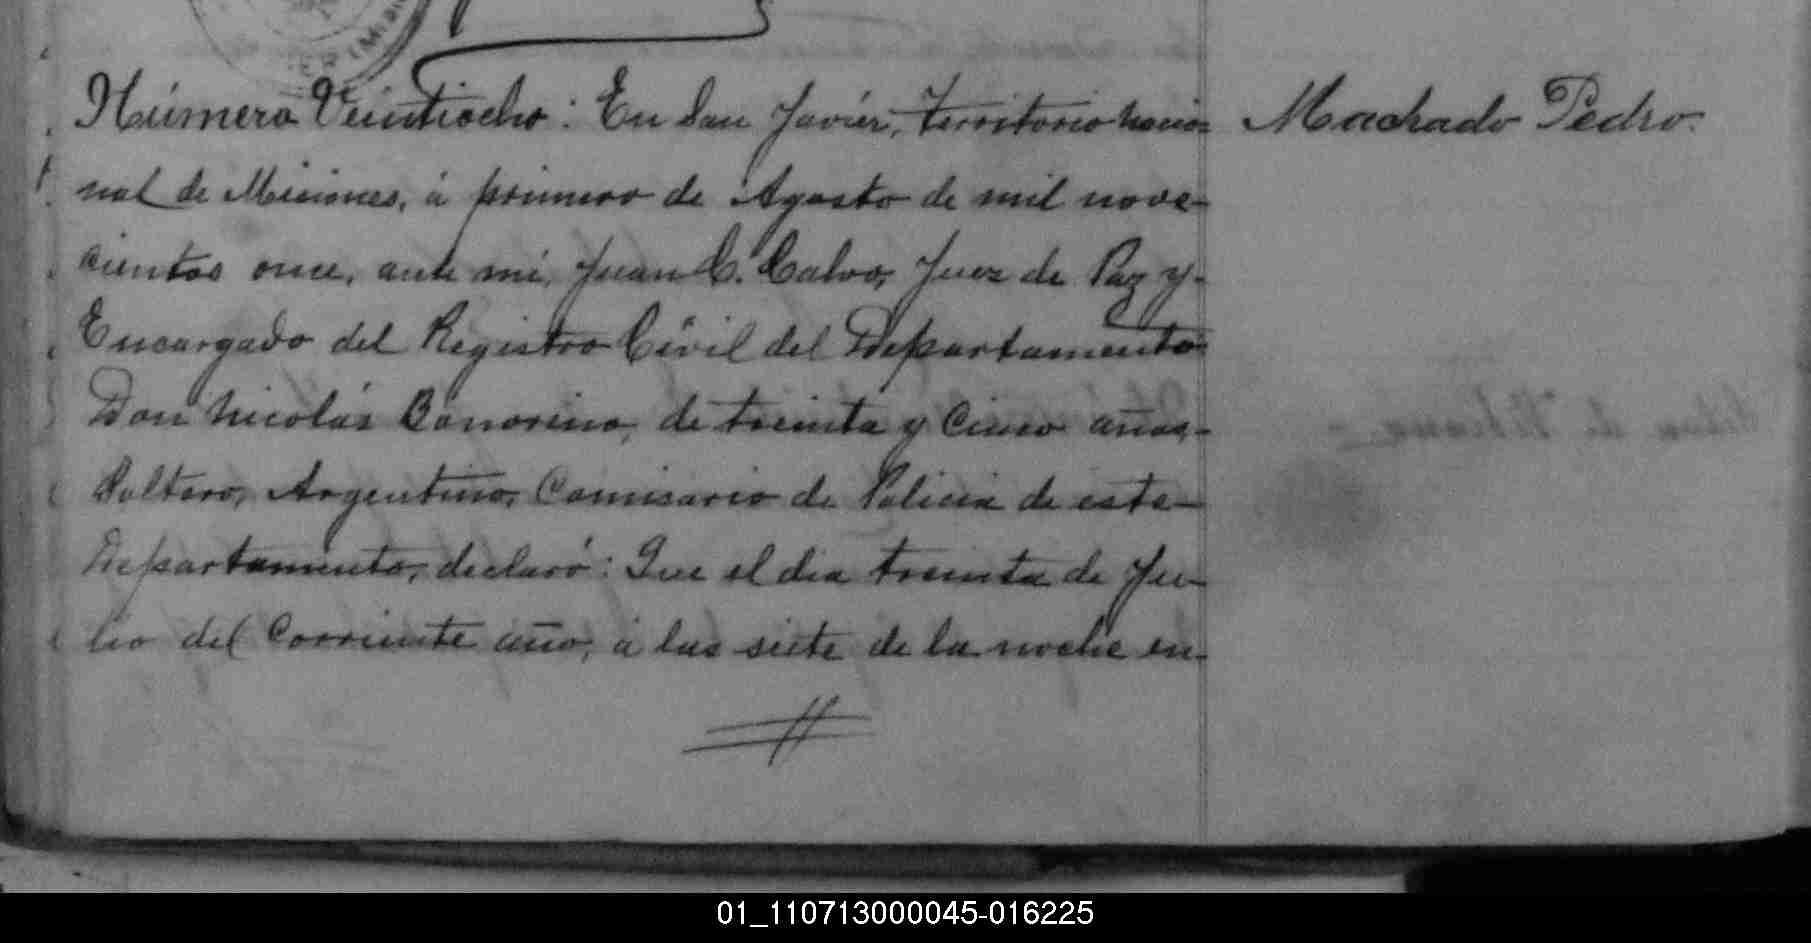 Número Veintiocho: En San Javier, Territorio nacio-
Machado Pedro.
nal de Misiones, á primero de Agosto de mil nove-
cientos once, ante mí, Juan C. Calvo, Juez de Paz y-
Encargado del Registro Civil del Departamento
Don Nicolás Bonorino, de treinta y Cinco años,-
Soltero, Argentino, Comisario de Policia de este-
Departamento, declaró: Que el dia treinta de Ju-
lio del Corriente año, á las siete de la noche en-
01_110713000045-016225